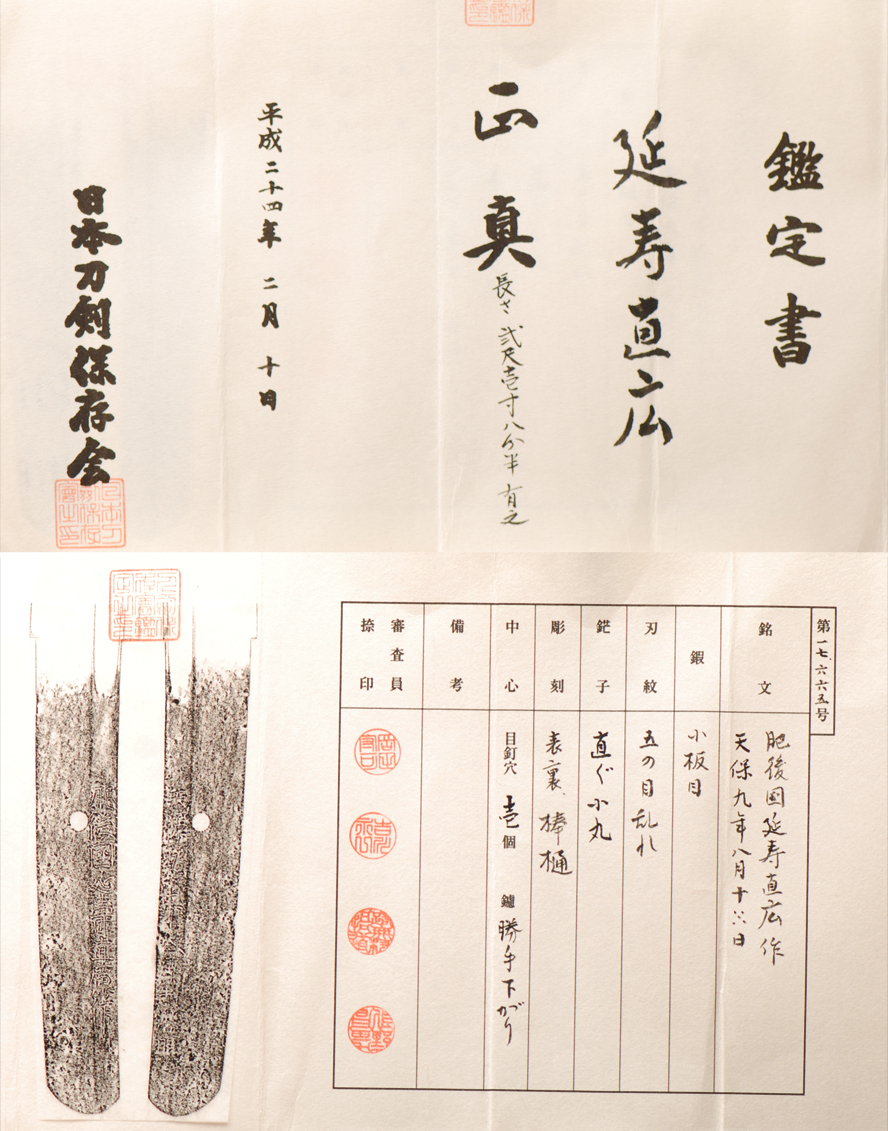 鑑定書
延寿直広
正真
長さ 弐尺壱寸八分半 有之
平成二十四年 二月 十日
日本刀剣保存会
第一七、六六五号
銘文
肥後国延寿直広作
天保九年八月十六日
鍜
小板目
刃紋
五の目乱れ
鋩子
直ぐ小丸
彫刻
表裏、棒樋
中心
目釘穴 壱個 鑢 勝手下がり
備考
審査員
捺印